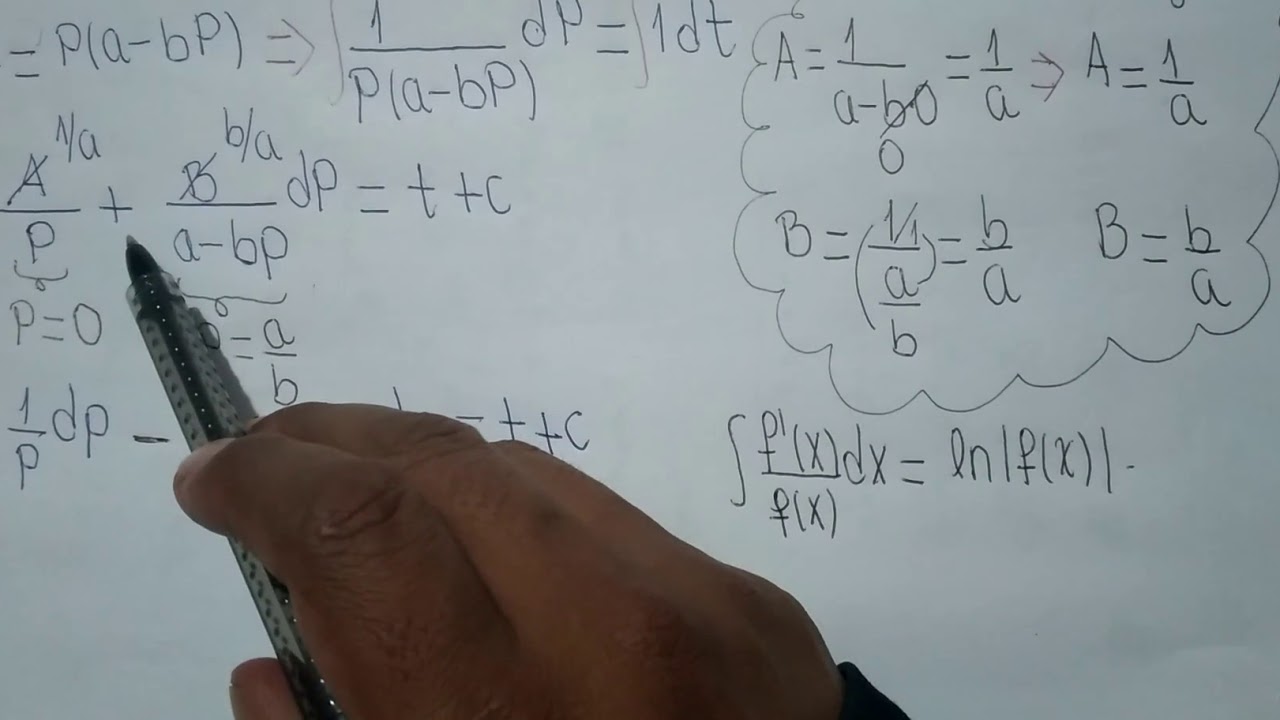 = P(a-bP) ⇒ ∫ 1/P(a-bP) dP = ∫ 1dt
A/P 1/a + B/a-bp b/a dP = t + c
P=0
= a/b
1/p dp - = t + c
A = 1/a-b0 0 = 1/a ⇒ A = 1/a
B = (1/1/a/b) = b/a B = b/a
∫ f'(x)/f(x) dx = ln|f(x)|.